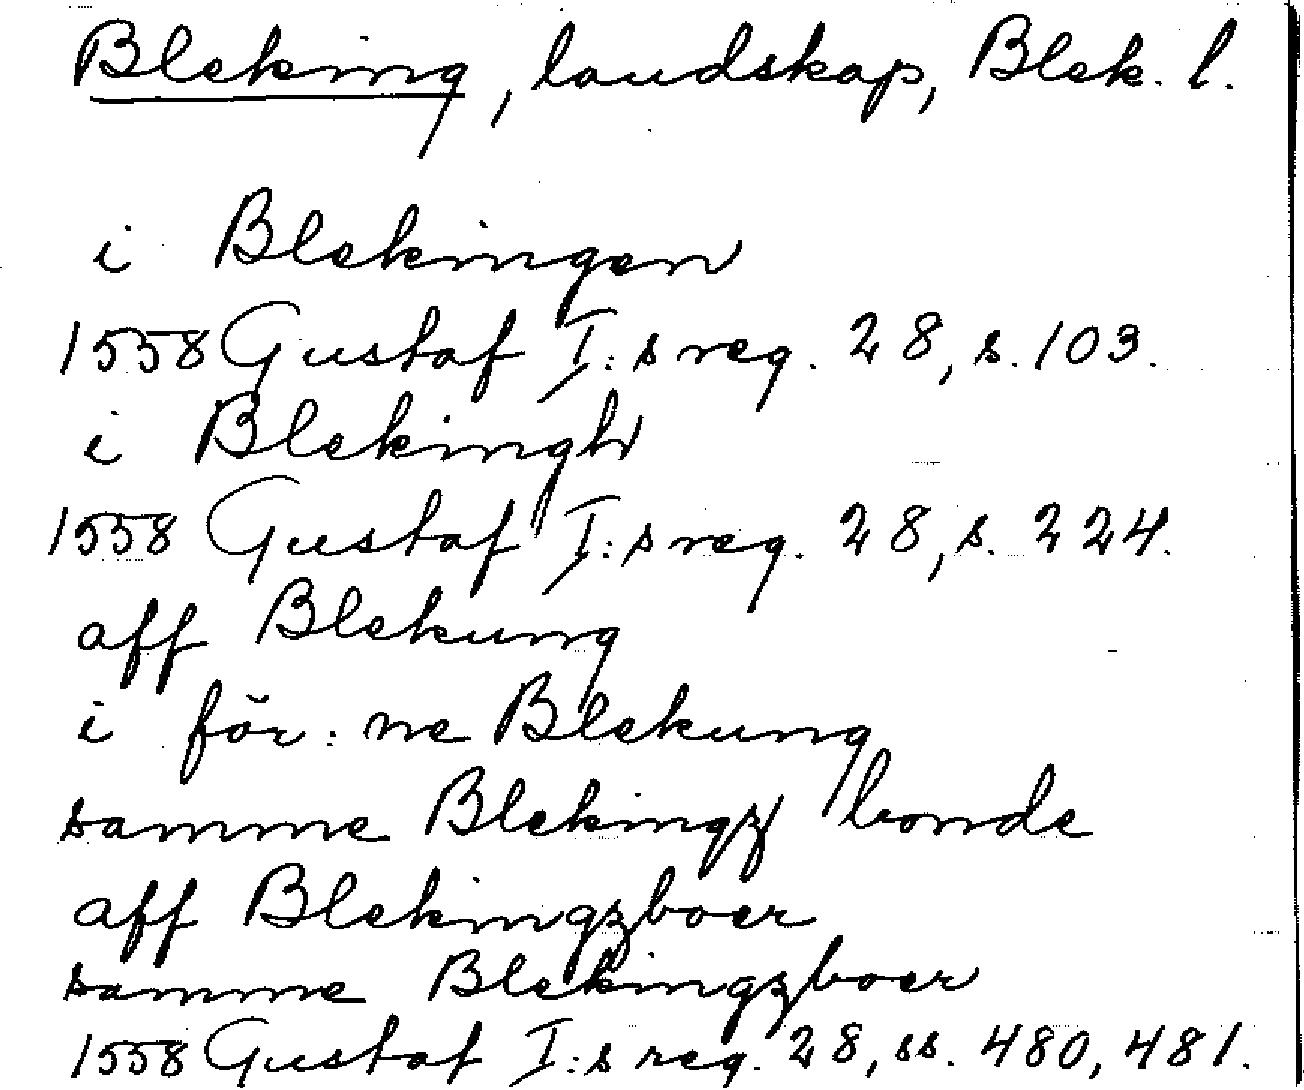 Bleking, landskap, Blek. l.
i Blekingen
1558 Gustaf I:s reg. 28, s. 103.
i Blekingh
1558 Gustaf I:s reg. 28, s. 224.
aff Blekung
i för: ne Blekung
samme Blekingz bonde
aff Blekingzboer
samme Blekingzboer
1558 Gustaf I:s reg. 28, ss. 480, 481.